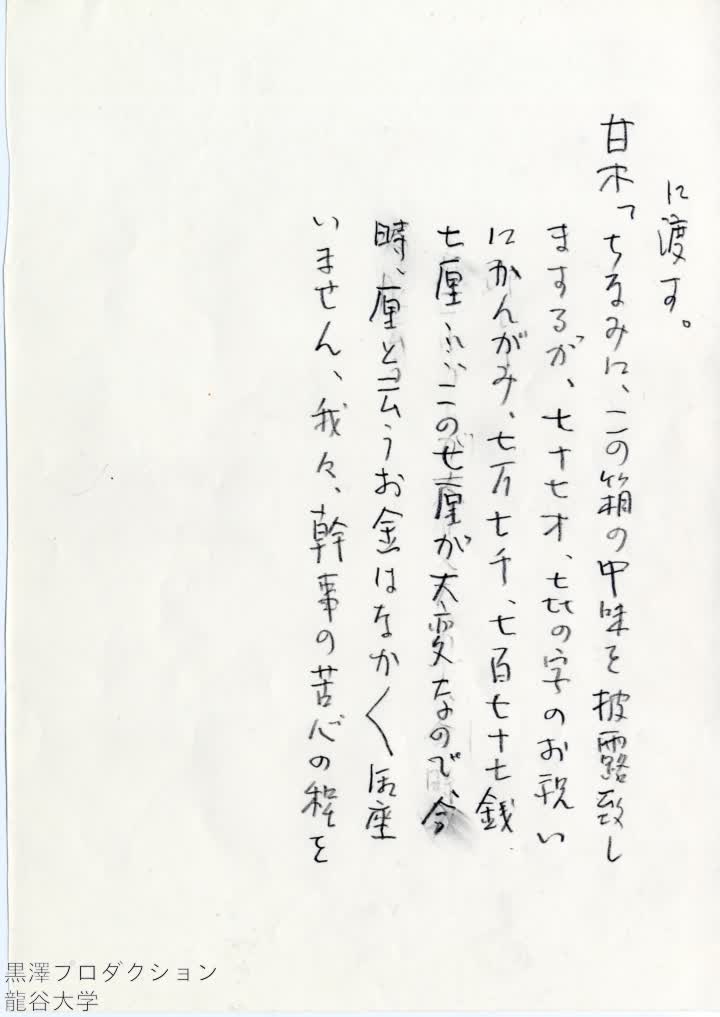 に渡す。
甘木「ちなみに、この箱の中味を披露致し
ますが、七十七才、㐂の字のお祝い
にかんがみ、七万七千、七百七十七銭
七厘……この七厘が大変なので、今
時、厘と云うお金はなか〳〵御座
いません、我々、幹事の苦心の程を
黒澤プロダクション
龍谷大学